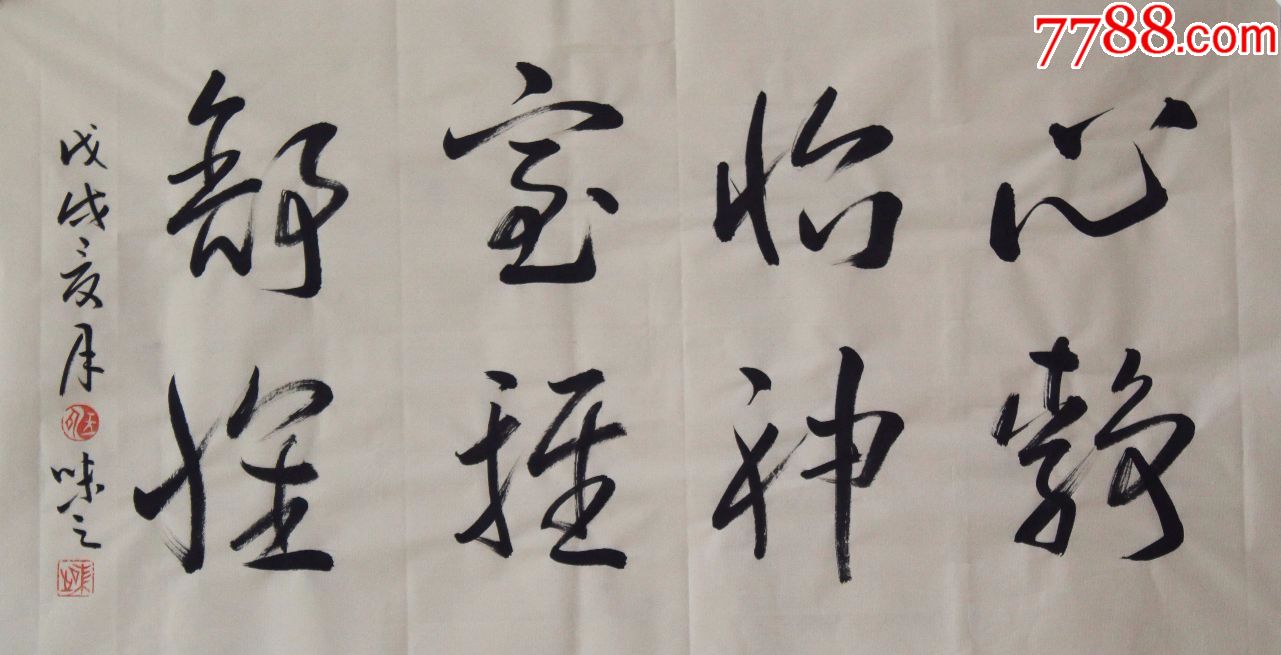 7788.com
心静
怡神
室雅
舒性
戊戌亥月 味之